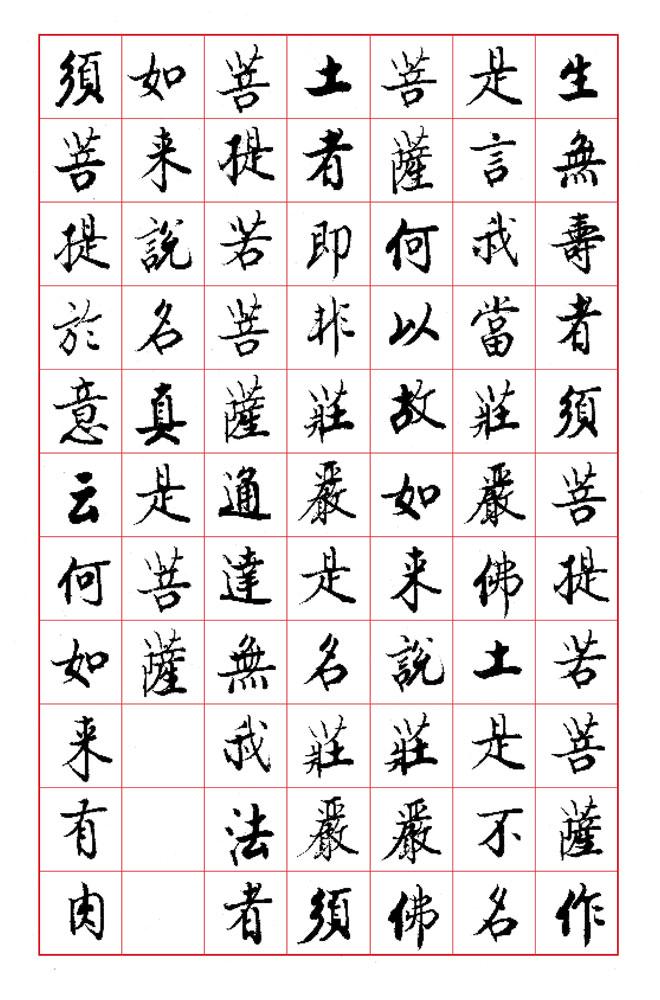 生無壽者須菩提若菩薩作
是言我當莊嚴佛土是不名
菩薩何以故如来說莊嚴佛
土者即非莊嚴是名莊嚴須
菩提若菩薩通達無我法者
如来說名真是菩薩
須菩提於意云何如来有肉